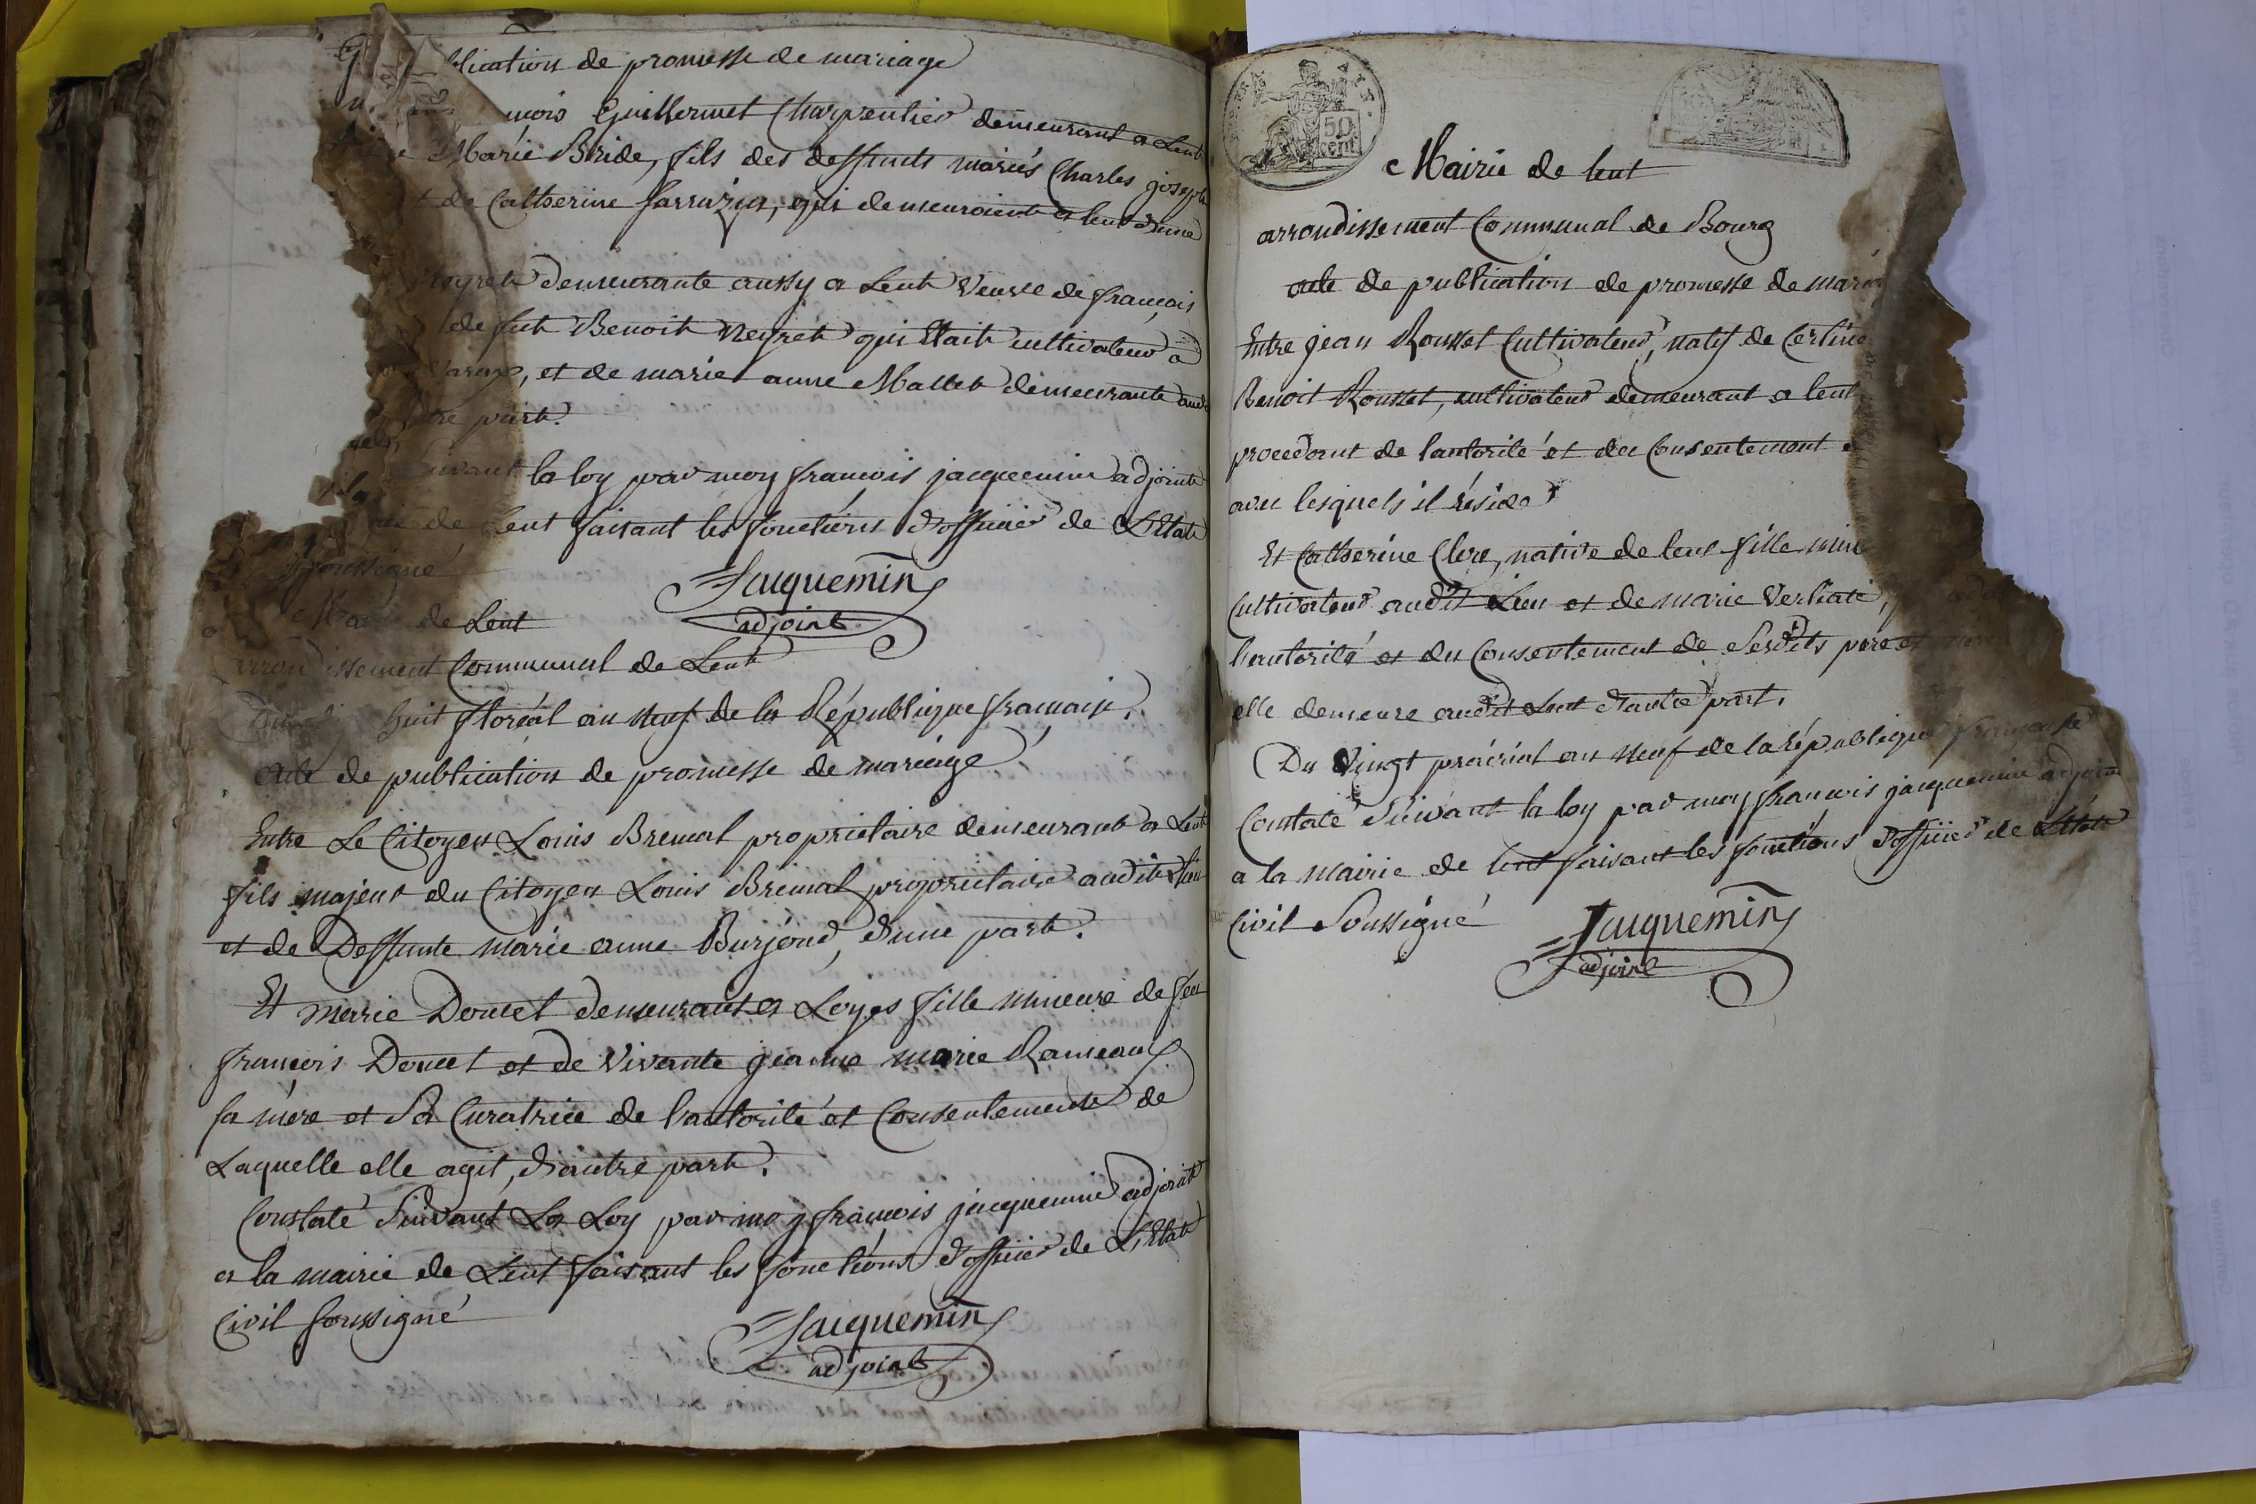 publication de promesse de mariage
Guillermet Charpentier demeurant a Lent
Marie Bride, fils des deffunts mariés Charles joseph
et de Catherine Sarrazin, qui demeuroient a lent d'une
Neyret demeurante aussy a Lent Veuve de françois
de fut Benoit Neyret qui Etait cultivateur a
et de marie anne Mallet demeurante audit
autre part.
Suivant la loy par moy françois jacquemin adjoint
de lent faisant les fonctions d'officier de L'Etat
soussigné
Jacquemin
adjoint
Mairie de Lent
arrondissement Communal de Lent
huit floréal an neuf de la République francaise.
acte de publication de promesse de mariage
Entre Le Citoyen Louis Bremal propriétaire demeurant a Lent
fils majeur du Citoyen Louis Bremal propriétaire audit Lieu
et de Deffunte marie anne Burjoud, d'une part.
Et marie Doucet demeurant a Loyes fille mineure de feu
françois Doucet et de vivante jeanne marie Rameaux
sa mère et Sa Curatrice de l'autorité et Consentement de
Laquelle elle agit, d'autre part.
Constaté Suivant La Loy par moy françois jacquemin adjoint
a la mairie de Lent faisant les fonctions d'officier de L'Etat
Civil soussigné
Jacquemin
adjoint
50
cent
Mairie de lent
arrondissement Communal de Bourg
acte de publication de promesse de mari
Entre jean Rousset Cultivateur, natif de Certine
Benoit Rousset, cultivateur demeurant a lent
procedant de l'autorité et du Consentement
avec lesquels il réside
Et Catherine Clere, native de lent fille mine
Cultivateur audit Lieu et de marie Verliate,
l'autorité et du Consentement de Sesdits père et
elle demeure audit Lent d'autre part.
Du vingt prairial an neuf de la république française
Constaté Suivant la loy par moy francois jacquemin adjoint
a la mairie de lent faisant les fonctions d'officier de L'état
Civil Soussigné
Jacquemin
adjoint